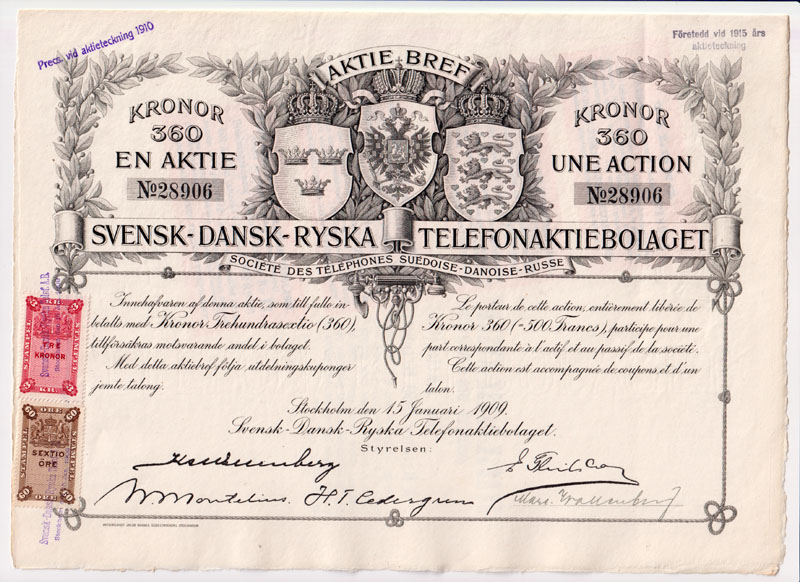 Pres. vid aktieteckning 1910
Företedd vid 1915 års
aktieteckning
AKTIE BREF
KRONOR
360
EN AKTIE
No28906
KRONOR
360
UNE ACTION
No28906
SVENSK-DANSK-RYSKA TELEFONAKTIEBOLAGET
SOCIÉTÉ DES TÉLÉPHONES SUÉDOISE-DANOISE-RUSSE
Innehafvaren af denna aktie, som till fullo in-
betalts med Kronor Trehundrasextio (360),
tillförsäkras motsvarande andel i bolaget.
Med detta aktiebref följa utdelningskuponger
jemte talong.
Le porteur de cette action, entièrement libérée de
Kronor 360 (=500 Francs), participe pour une
part correspondante à l'actif et au passif de la société.
Cette action est accompagnée de coupons et d'un
talon.
Stockholm den 15 Januari 1909.
Svensk-Dansk-Ryska Telefonaktiebolaget.
Styrelsen:
K A Wallenberg
W Montelius
H. T. Cedergren
Marc. Wallenberg
3 KR 3
STÄMPEL
TRE
KRONOR
STÄMPEL
3 KR 3
60 ÖRE 60
STÄMPEL
SEXTIO
ÖRE
STÄMPEL
60 ÖRE 60